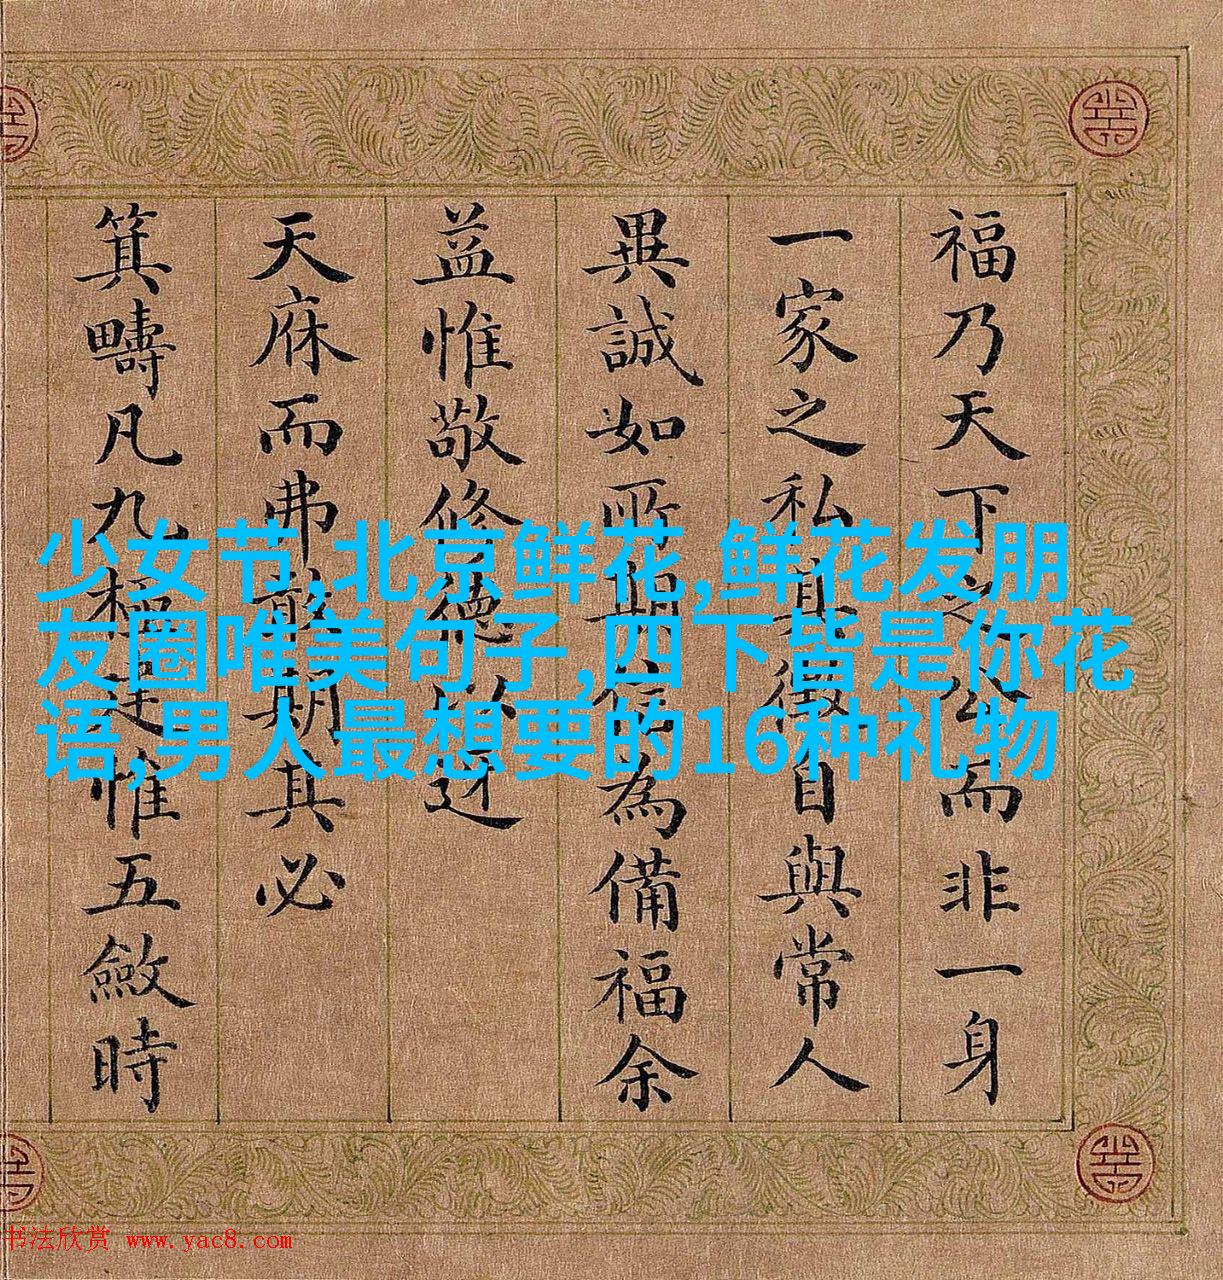 福乃天下之公而非一身
一家之私其徵自與常人
異誠如所期信為備福余
益惟敬修德以迓
天庥而弗敢期其必
箕疇凡九極建惟五斂時
少女节,北京鲜花,鲜花发朋
友圈唯美句子,四下皆是你花
语,男人最想要的16种礼物
书法欣赏 www.yac8.com